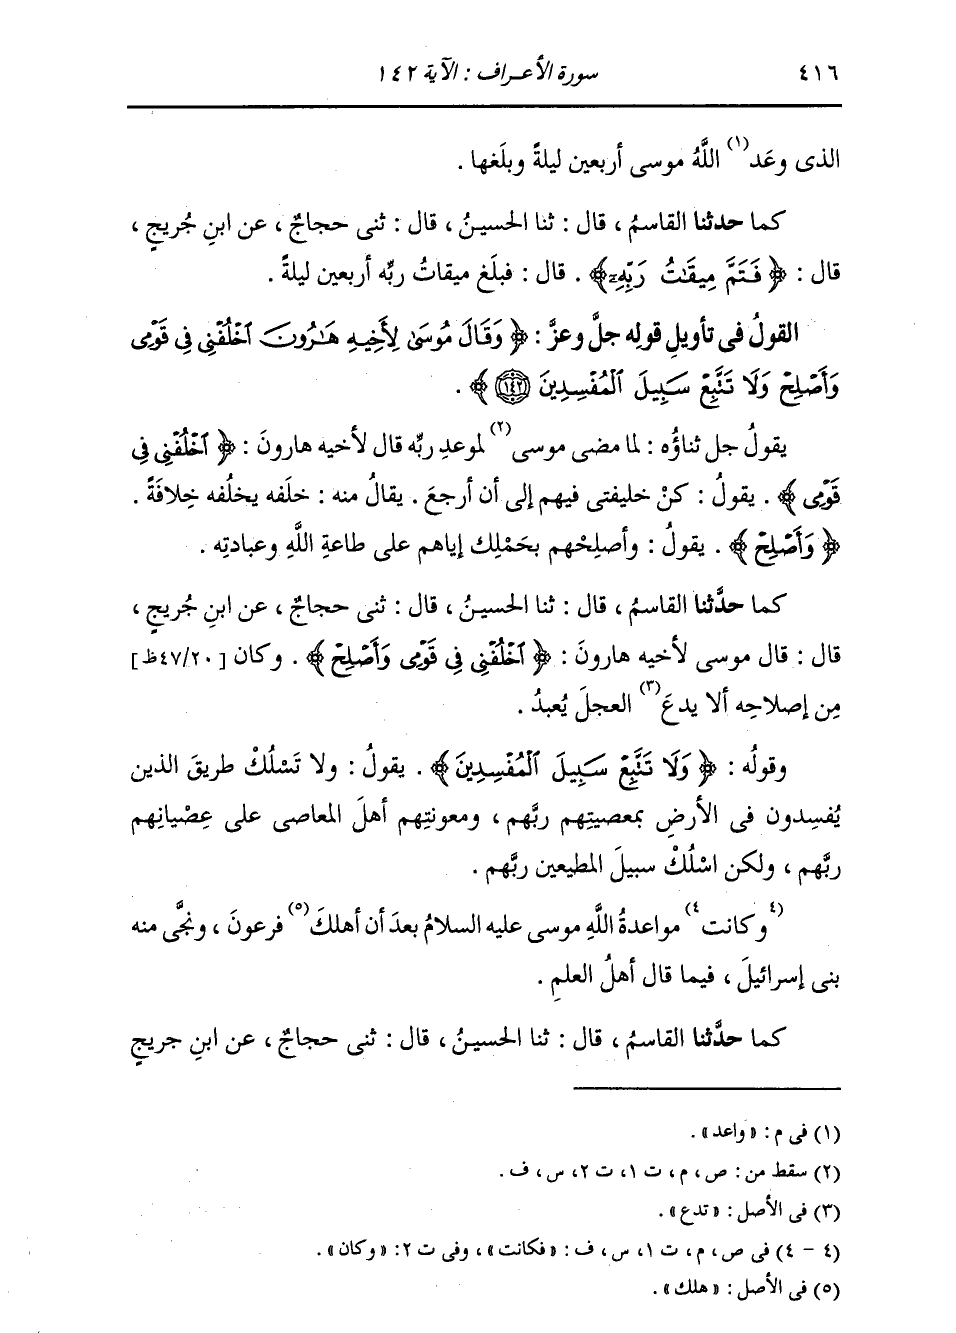 ٤١٦ سورة الأعراف : الآية ١٤٢
الذى وعَد(١) اللَّهُ موسى أربعين ليلةً وبلَغها .
كما حدثنا القاسمُ ، قال : ثنا الحسينُ ، قال : ثنى حجاجٌ ، عن ابنِ جريجٍ ،
قال : ﴿ فَتَمَّ مِيقَٰتُ رَبِّهِۦ ﴾ . قال : فبلَغ ميقاتُ ربِّه أربعين ليلةً .
القولُ فى تأويلِ قولِه جلَّ وعزَّ : ﴿ وَقَالَ مُوسَىٰ لِأَخِيهِ هَٰرُونَ ٱخْلُفْنِى فِى قَوْمِى
وَأَصْلِحْ وَلَا تَتَّبِعْ سَبِيلَ ٱلْمُفْسِدِينَ ١٤٢ ﴾ .
يقولُ جل ثناؤُه : لما مضى موسى(٢) لموعدِ ربِّه قال لأخيه هارونَ : ﴿ ٱخْلُفْنِى فِى
قَوْمِى ﴾ . يقولُ : كنْ خليفتى فيهم إلى أن أرجعَ . يقالُ منه : خلَفه يخلُفه خِلافَةً .
﴿ وَأَصْلِحْ ﴾ . يقولُ : وأصلِحْهم بحَمْلِك إياهم على طاعةِ اللَّهِ وعبادتِه .
كما حدَّثنا القاسمُ ، قال : ثنا الحسينُ ، قال : ثنى حجاجٌ ، عن ابنِ جُريجٍ ،
قال : قال موسى لأخيه هارونَ : ﴿ ٱخْلُفْنِى فِى قَوْمِى وَأَصْلِحْ ﴾ . وكان [ ٤٧/٢٠ظ ]
مِن إصلاحِه ألا يدعَ(٣) العجلَ يُعبدُ .
وقولُه : ﴿ وَلَا تَتَّبِعْ سَبِيلَ ٱلْمُفْسِدِينَ ﴾ . يقولُ : ولا تَسْلُكْ طريقَ الذين
يُفسِدون فى الأرضِ بمعصيتِهم ربَّهم ، ومعونتِهم أهلَ المعاصى على عِصْيانِهم
ربَّهم ، ولكن اسْلُكْ سبيلَ المطيعين ربَّهم .
(٤وكانت٤) مواعدةُ اللَّهِ موسى عليه السلامُ بعدَ أن أهلكَ(٥) فرعونَ ، ونجَّى منه
بنى إسرائيلَ ، فيما قال أهلُ العلمِ .
كما حدَّثنا القاسمُ ، قال : ثنا الحسينُ ، قال : ثنى حجاجٌ ، عن ابنِ جريجٍ
(١) فى م : « واعد » .
(٢) سقط من : ص ، م ، ت ١ ، ت ٢ ، س ، ف .
(٣) فى الأصل : « تدع » .
(٤ - ٤) فى ص ، م ، ت ١ ، س ، ف : « فكانت » ، وفى ت ٢ : « وكان » .
(٥) فى الأصل : « هلك » .